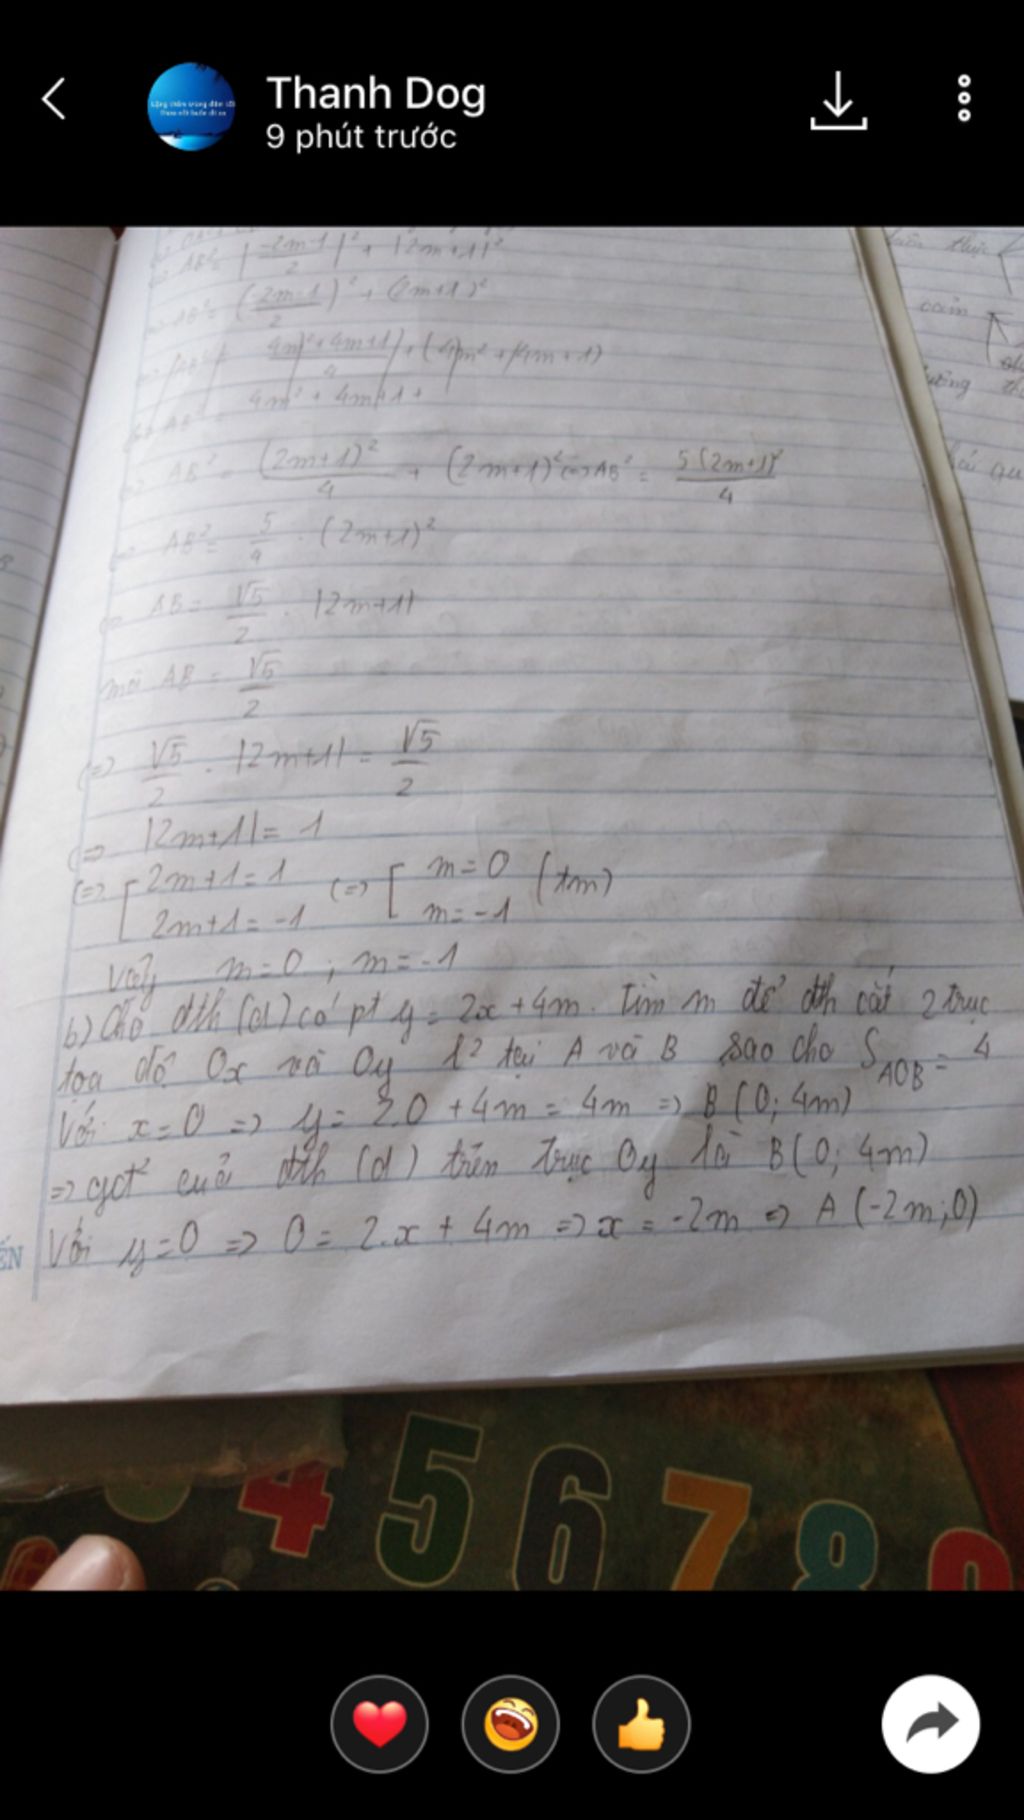 Thanh Dog
9 phút trước
AB² = |(-2m-1)/2|² + |2m+1|²
AB² = ((-2m-1)/2)² + (2m+1)²
4m² + 4m+1 / 4 + (4m² + 4m+1)
AB² = 4m² + 4m+1 +
AB² = (2m+1)²/4 + (2m+1)² <=> AB² = 5(2m+1)²/4
<=> AB² = 5/4 . (2m+1)²
<=> AB = √5/2 . |2m+1|
mà AB = √5/2
<=> √5/2 . |2m+1| = √5/2
<=> |2m+1| = 1
<=> [ 2m+1=1 <=> [ m=0 (tm)
2m+1=-1 m=-1
Vậy m=0 ; m=-1
b) Cho đth (d) có pt y = 2x + 4m. Tìm m để đth cắt 2 trục
tọa độ Ox và Oy l² tại A và B sao cho S AOB = 4
Với x=0 => y= 2.0 +4m = 4m => B(0; 4m)
=> gđ² của đth (d) trên trục Oy là B(0; 4m)
Với y=0 => 0 = 2.x + 4m => x = -2m => A (-2m;0)
ẾN
4 5 6 7 8